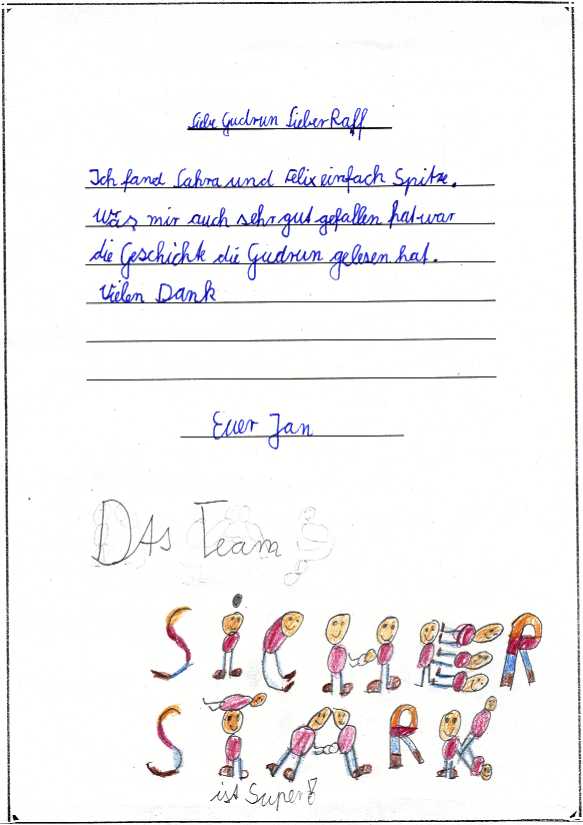 Liebe Gudrun Lieber Raff
Ich fand Sahra und Felix einfach Spitze.
Was mir auch sehr gut gefallen hat war
die Geschichte die Gudrun gelesen hat.
Vielen Dank
Euer Jan
DAs Team
SiCHER
STARK
ist Super!